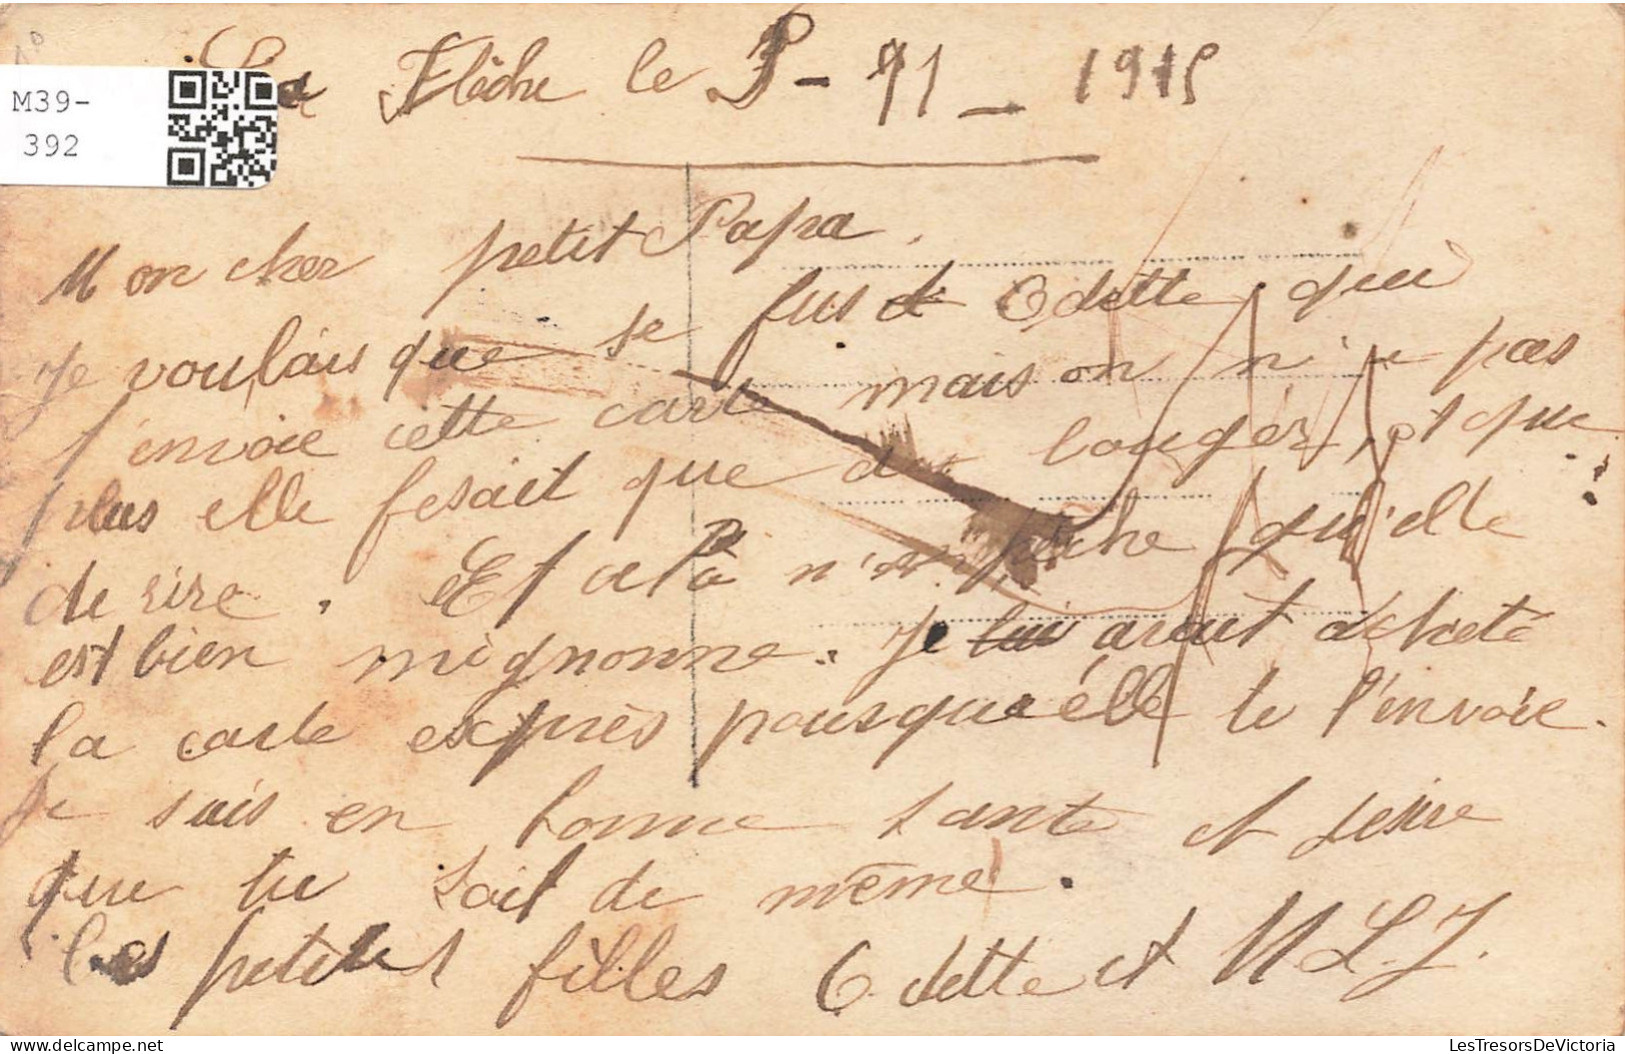 M39-
392
La Flèche le 3 - 11 - 1915
Mon cher petit Papa,
Je voulais que se fus Odette qui
t'envoie cette carte mais on n' pas
plus elle fesait que de bouger, et que
de rire. Et cela n'empêche qu'elle
est bien mignonne. Je avait acheté
la carte exprès pousque élle te l'envoie.
Je suis en bonne sante et desire
que tu soit de même.
Les petites filles Odette et M L. J.
delcampe.net
LesTresorsDeVictoria